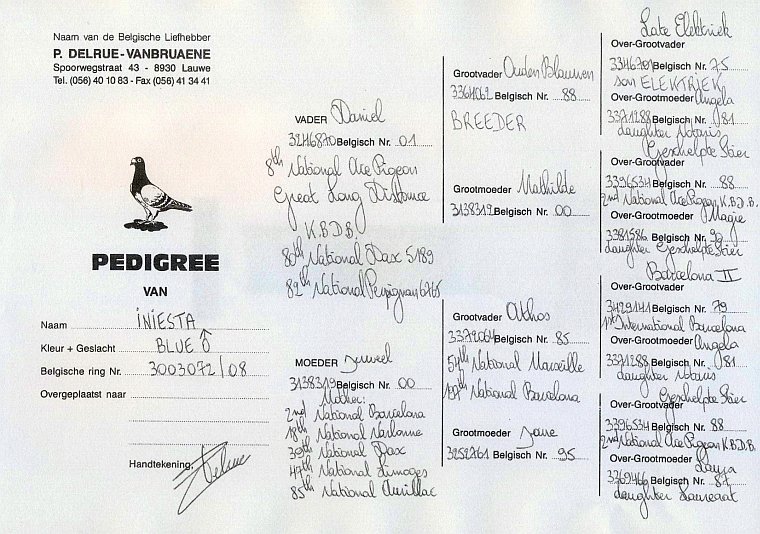 Naam van de Belgische Liefhebber
P. DELRUE-VANBRUAENE
Spoorwegstraat 43 - 8930 Lauwe
Tel. (056) 40 10 83 - Fax (056) 41 34 41
PEDIGREE
VAN
Naam INIESTA
Kleur + Geslacht BLUE ♂
Belgische ring Nr. 3003072/08
Overgeplaatst naar
Handtekening, Delrue
VADER Daniel
3246870 Belgisch Nr. 01
8th National Ace Pigeon
Great Long Distance
K.B.D.B.
80th National Dax 5189
82th National Perpignan 6765
MOEDER Juweel
3138319 Belgisch Nr. 00
Mother:
2nd National Barcelona
18th National Narbonne
39th National Dax
47th National Limoges
85th National Aurillac
Grootvader Ouden Blauwen
3364062 Belgisch Nr. 88
BREEDER
Grootmoeder Mathilde
3138312 Belgisch Nr. 00
Grootvader Athos
3372064 Belgisch Nr. 85
54th National Marseille
197th National Barcelona
Grootmoeder Jane
3252761 Belgisch Nr. 95
Late Elektriek
Over-Grootvader
3346701 Belgisch Nr. 75
son ELEKTRIEK
Over-Grootmoeder Angela
3371288 Belgisch Nr. 81
daughter Notaris
Geschelpte Stier
Over-Grootvader
3396534 Belgisch Nr. 88
2nd National Ace Pigeon K.B.D.B.
Over-Grootmoeder Magie
3381586 Belgisch Nr. 90
daughter Geschelpte Stier
Barcelona II
Over-Grootvader
3429141 Belgisch Nr. 79
1st International Barcelona
Over-Grootmoeder Angela
3371288 Belgisch Nr. 81
daughter Notaris
Geschelpte Stier
Over-Grootvader
3396534 Belgisch Nr. 88
2nd National Ace Pigeon K.B.D.B.
Over-Grootmoeder Laura
3369466 Belgisch Nr. 87
daughter Laureaat